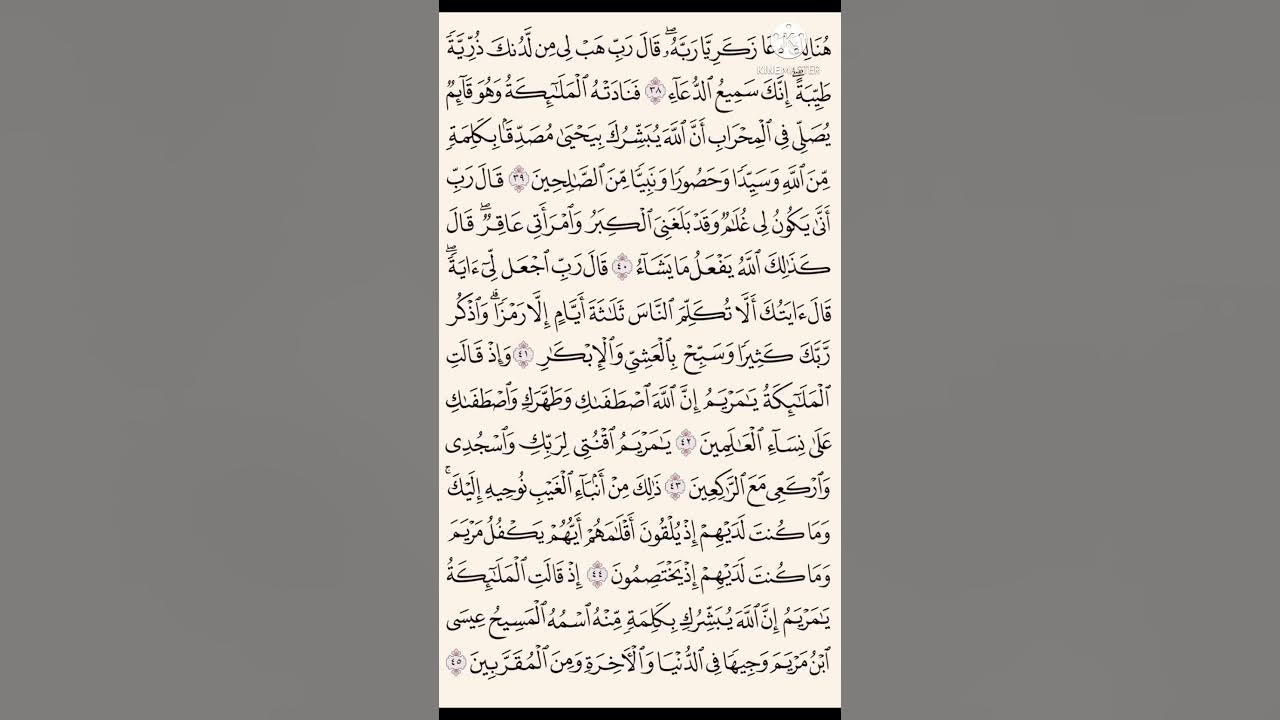 هُنَالِكَ دَعَا زَكَرِيَّا رَبَّهُۥۖ قَالَ رَبِّ هَبۡ لِي مِن لَّدُنكَ ذُرِّيَّةٗ
KINEMASTER
طَيِّبَةًۖ إِنَّكَ سَمِيعُ ٱلدُّعَآءِ ٣٨ فَنَادَتۡهُ ٱلۡمَلَٰٓئِكَةُ وَهُوَ قَآئِمٞ
يُصَلِّي فِي ٱلۡمِحۡرَابِ أَنَّ ٱللَّهَ يُبَشِّرُكَ بِيَحۡيَىٰ مُصَدِّقَۢا بِكَلِمَةٖ
مِّنَ ٱللَّهِ وَسَيِّدٗا وَحَصُورٗا وَنَبِيّٗا مِّنَ ٱلصَّٰلِحِينَ ٣٩ قَالَ رَبِّ
أَنَّىٰ يَكُونُ لِي غُلَٰمٞ وَقَدۡ بَلَغَنِيَ ٱلۡكِبَرُ وَٱمۡرَأَتِي عَاقِرٞۖ قَالَ
كَذَٰلِكَ ٱللَّهُ يَفۡعَلُ مَا يَشَآءُ ٤٠ قَالَ رَبِّ ٱجۡعَل لِّيٓ ءَايَةٗۖ
قَالَ ءَايَتُكَ أَلَّا تُكَلِّمَ ٱلنَّاسَ ثَلَٰثَةَ أَيَّامٍ إِلَّا رَمۡزٗاۗ وَٱذۡكُر
رَّبَّكَ كَثِيرٗا وَسَبِّحۡ بِٱلۡعَشِيِّ وَٱلۡإِبۡكَٰرِ ٤١ وَإِذۡ قَالَتِ
ٱلۡمَلَٰٓئِكَةُ يَٰمَرۡيَمُ إِنَّ ٱللَّهَ ٱصۡطَفَىٰكِ وَطَهَّرَكِ وَٱصۡطَفَىٰكِ
عَلَىٰ نِسَآءِ ٱلۡعَٰلَمِينَ ٤٢ يَٰمَرۡيَمُ ٱقۡنُتِي لِرَبِّكِ وَٱسۡجُدِي
وَٱرۡكَعِي مَعَ ٱلرَّٰكِعِينَ ٤٣ ذَٰلِكَ مِنۡ أَنۢبَآءِ ٱلۡغَيۡبِ نُوحِيهِ إِلَيۡكَۚ
وَمَا كُنتَ لَدَيۡهِمۡ إِذۡ يُلۡقُونَ أَقۡلَٰمَهُمۡ أَيُّهُمۡ يَكۡفُلُ مَرۡيَمَ
وَمَا كُنتَ لَدَيۡهِمۡ إِذۡ يَخۡتَصِمُونَ ٤٤ إِذۡ قَالَتِ ٱلۡمَلَٰٓئِكَةُ
يَٰمَرۡيَمُ إِنَّ ٱللَّهَ يُبَشِّرُكِ بِكَلِمَةٖ مِّنۡهُ ٱسۡمُهُ ٱلۡمَسِيحُ عِيسَى
ٱبۡنُ مَرۡيَمَ وَجِيهٗا فِي ٱلدُّنۡيَا وَٱلۡأٓخِرَةِ وَمِنَ ٱلۡمُقَرَّبِينَ ٤٥